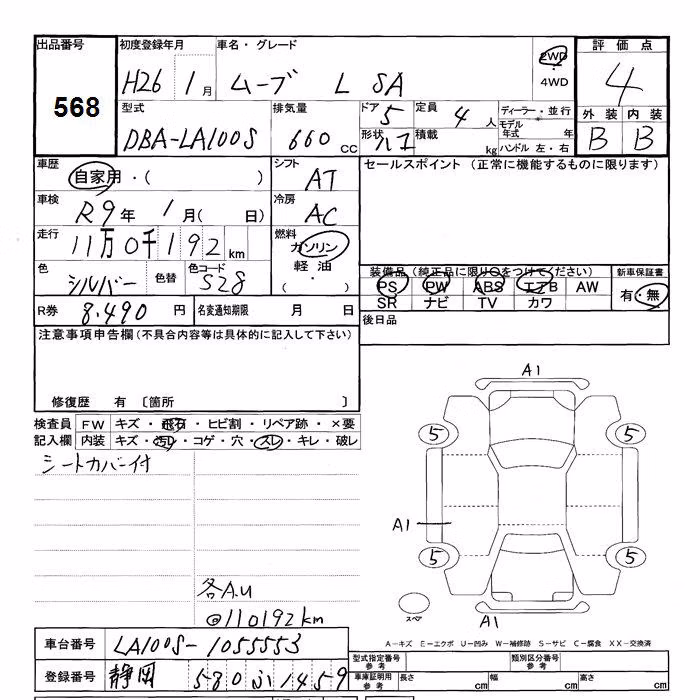 出品番号 初度登録年月 車名・グレード 2WD 評価点
568 H26 1月 ムーブ L SA ・ 4WD 4
型式 排気量 ドア 5 定員 4人 ディーラー・並行 外装 内装
DBA-LA100S 660cc 形状 ハコ 積載 kg モデル年式 年 ハンドル 左・右 B B
車歴 シフト セールスポイント (正常に機能するものに限ります)
自家用・( ) AT
車検 冷房
R9年 1月( 日) AC
走行 燃料
11万0千192km ガソリン
色 色替 色コード 軽油 装備品(純正品に限り○をつけてください) 新車保証書
シルバー S28 ( ・ ) PS PW ABS エアB AW 有・無
SR ナビ TV カワ
R券 8.490円 名変通知期限 月 日 後日品
注意事項申告欄(不具合内容等は具体的に記入して下さい)
修復歴 有 〔箇所 〕
検査員 FW キズ・飛石・ヒビ割・リペア跡・×要
記入欄 内装 キズ・汚レ・コゲ・穴・スレ・キレ・破レ
シートカバー付
各A.U
@110192km
A1
5 5
A1
5 5
スペア
A1
A-キズ E-エクボ U-凹み W-補修跡 S-サビ C-腐食 XX-交換済
車台番号 LA100S-1055553 型式指定番号 参考 類別区分番号 参考
登録番号 静岡 580 ふ1459 車庫証明用 参考 長さ cm 幅 cm 高さ cm